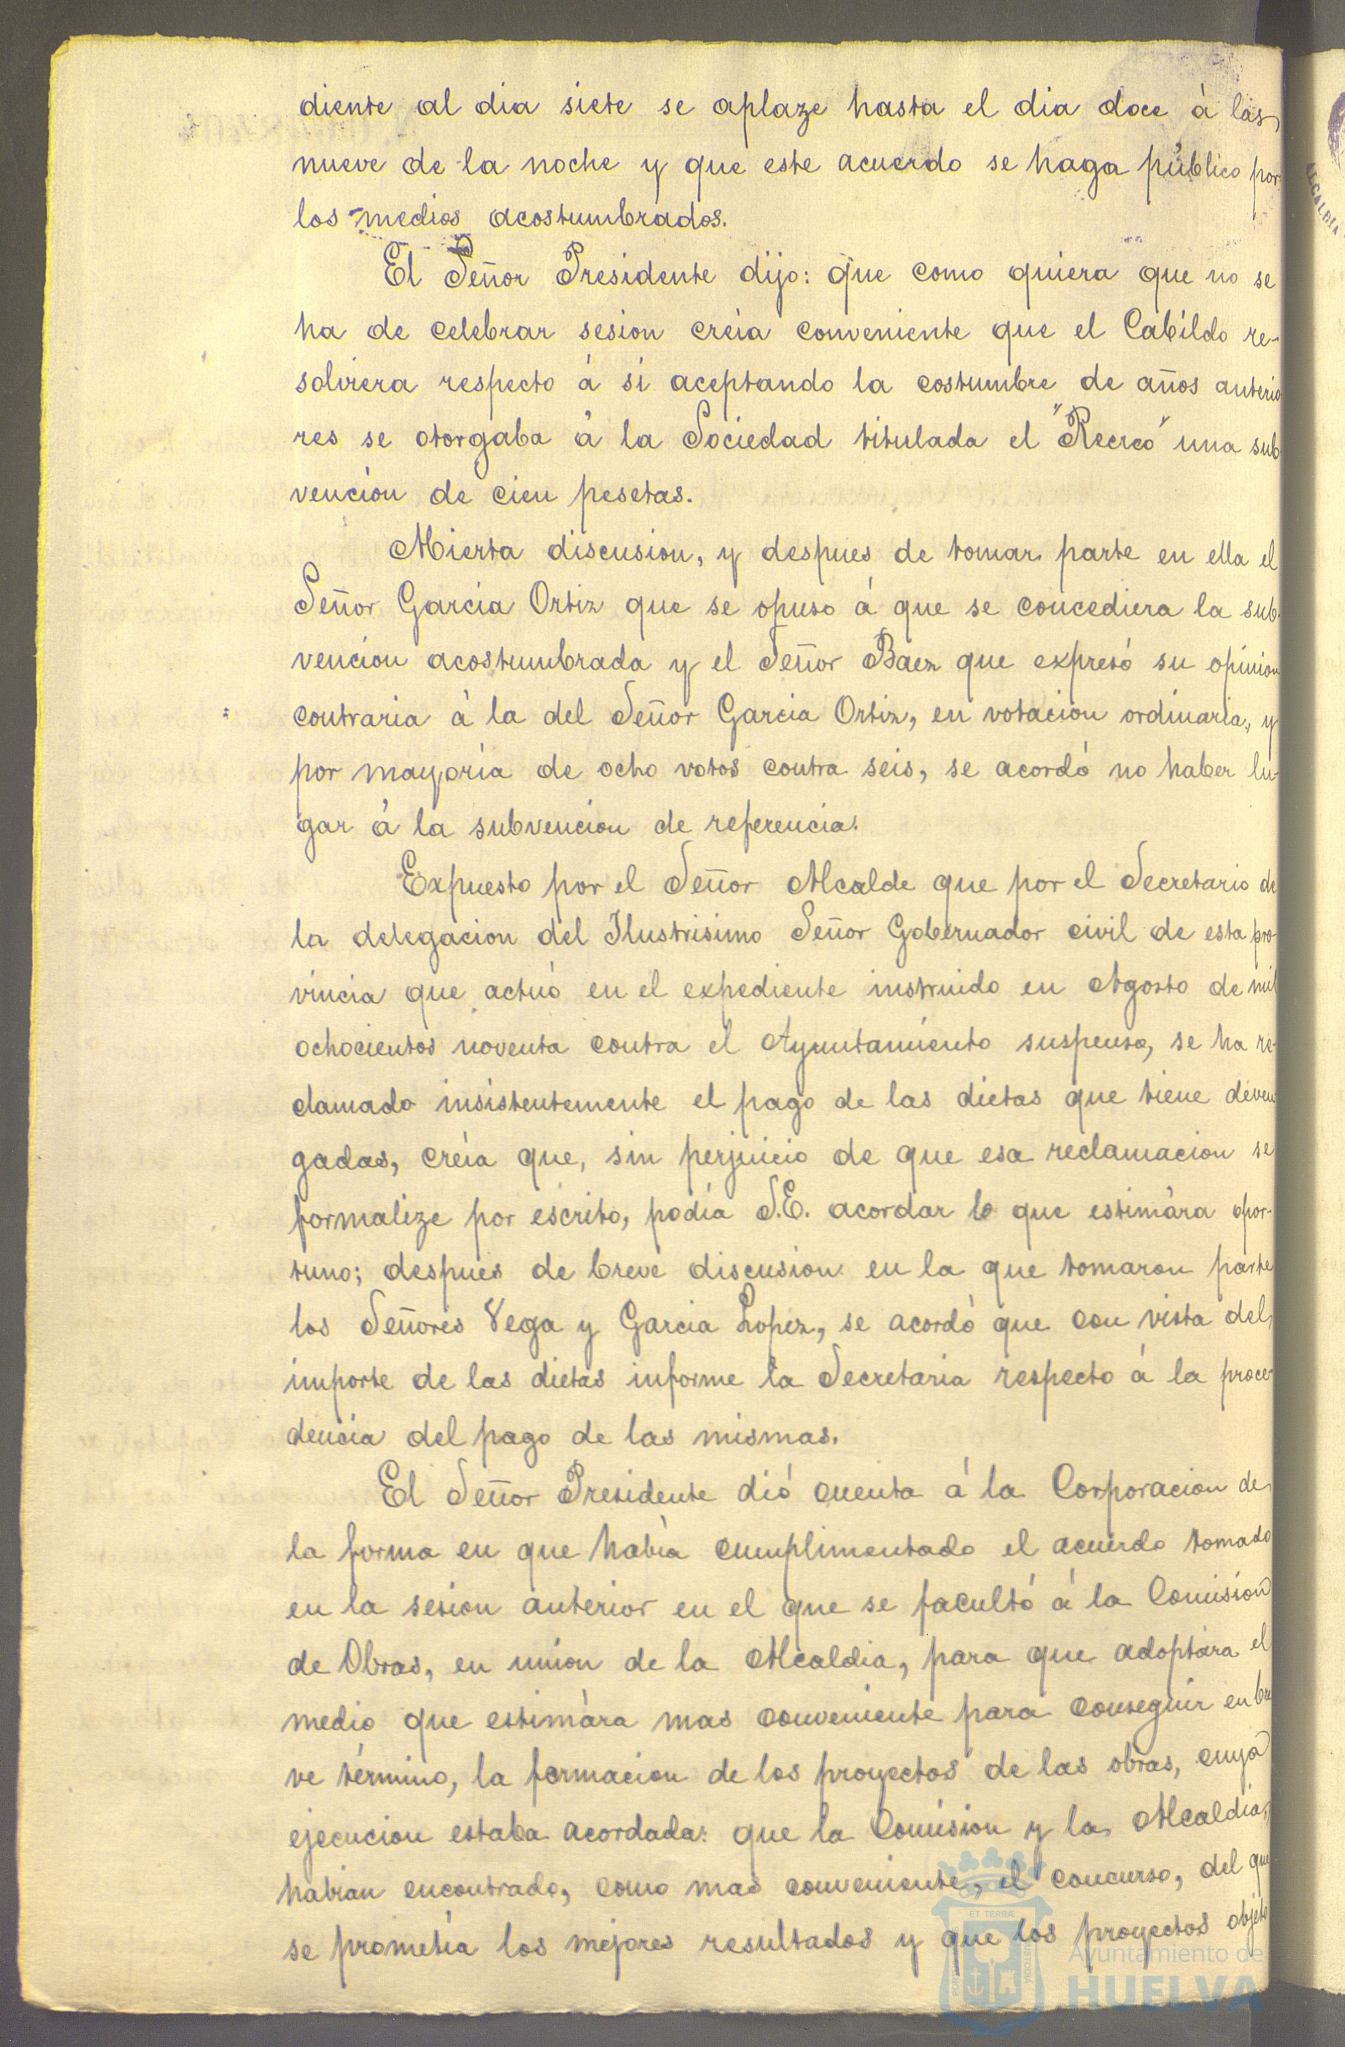 diente al dia siete se aplaze hasta el dia doce á las
nueve de la noche y que este acuerdo se haga público por
los medios acostumbrados.
El Señor Presidente dijo: que como quiera que no se
ha de celebrar sesion creía conveniente que el Cabildo re-
solviera respecto á si aceptando la costumbre de años anterio
res se otorgaba á la Sociedad titulada el "Recreo" una sub
vencion de cien pesetas.
Abierta discusion, y despues de tomar parte en ella el
Señor Garcia Ortiz que se opuso á que se concediera la sub-
vencion acostumbrada y el Señor Baez que expresó su opinion
contraria á la del Señor Garcia Ortiz, en votacion ordinaria, y
por mayoría de ocho votos contra seis, se acordó no haber lu-
gar á la subvencion de referencia.
Expuesto por el Señor Alcalde que por el Secretario de
la delegacion del Ilustrisimo Señor Gobernador civil de esta pro-
vincia que actuó en el expediente instruido en Agosto de mil
ochocientos noventa contra el Ayuntamiento suspenso, se ha re-
clamado insistentemente el pago de las dietas que tiene deven
gadas, creía que, sin perjuicio de que esa reclamacion se
formalize por escrito, podía S.E. acordar lo que estimára opor-
tuno; despues de breve discusion en la que tomaron parte
los Señores Vega y Garcia Lopez, se acordó que con vista del
importe de las dietas informe la Secretaria respecto á la proce-
dencia del pago de las mismas.
El Señor Presidente dió cuenta á la Corporacion de
la forma en que había cumplimentado el acuerdo tomado
en la sesion anterior en el que se facultó á la Comision
de Obras, en union de la Alcaldia, para que adoptára el
medio que estimára mas conveniente para conseguir en bre
ve término, la formacion de los proyectos de las obras, cuya
ejecucion estaba acordada: que la Comision y la Alcaldia,
habian encontrado, como mas conveniente, el concurso, del que
se prometía los mejores resultados y que los proyectos objeto
Ayuntamiento de
HUELVA